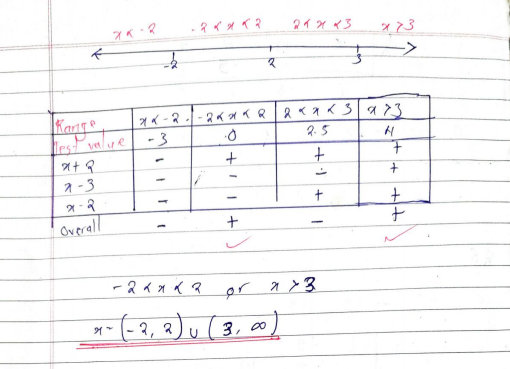 x < -2 -2 < x < 2 2 < x < 3 x > 3
-2 2 3
Range x < -2 -2 < x < 2 2 < x < 3 x > 3
Test value -3 0 2.5 4
x+2 - + + +
x-3 - - - +
x-2 - - + +
Overall - + - +
-2 < x < 2 or x > 3
x = (-2, 2) ∪ (3, ∞)